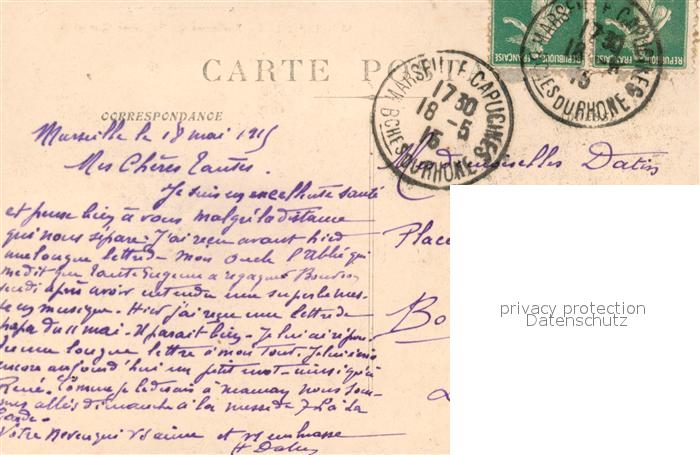 CARTE PO
CORRESPONDANCE
RÉPUBLIQUE FRANÇAISE
MARSEILLE CAPUCINES
17 30
18 - 5
15
BCHES DU RHONE
Marseille le 18 mai 1915
Mes Chères tantes.
Je suis en excellente santé
et pense bien à vous malgré la distance
qui nous sépare. J'ai reçu avant hier
une longue lettre de mon Oncle l'Abbé qui
me dit que tante Eugenie a regagné
après avoir entendu une superbe messe
en musique. Hier j'ai reçu une lettre de
papa du 11 mai. Il parait bien. Je lui ai répon-
une longue lettre à mon tour. Je lui
encore aujourd'hui un petit mot ainsi qu'à
René. Comme je le disais à maman nous som-
mes allés dimanche à la messe de 7 h à la
Garde.
Votre neveu qui vs aime et vs embrasse
H Datin
Mademoiselles Datin
Place
Bo
privacy protection
Datenschutz